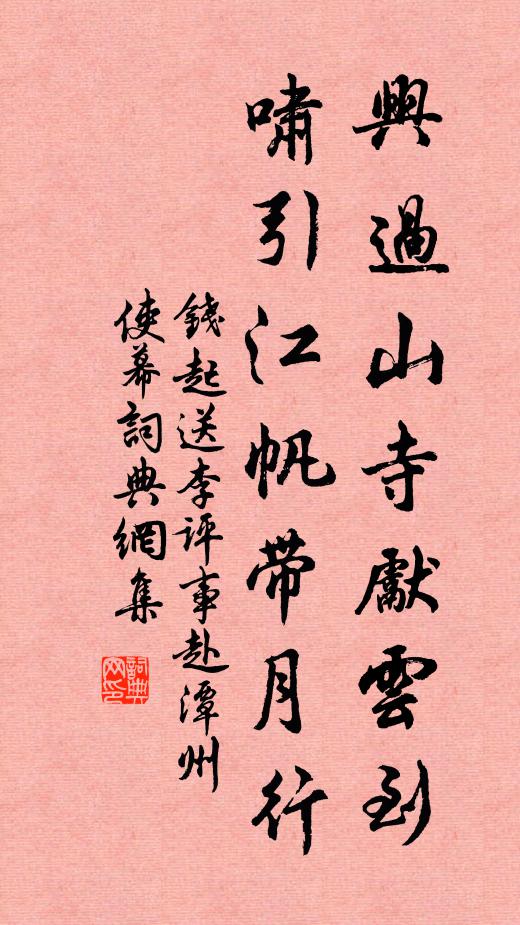 興過山寺獻雲到
嘯引江帆帶月行
錢起送李評事赴潭州
使幕詞典網集
詞典
网印